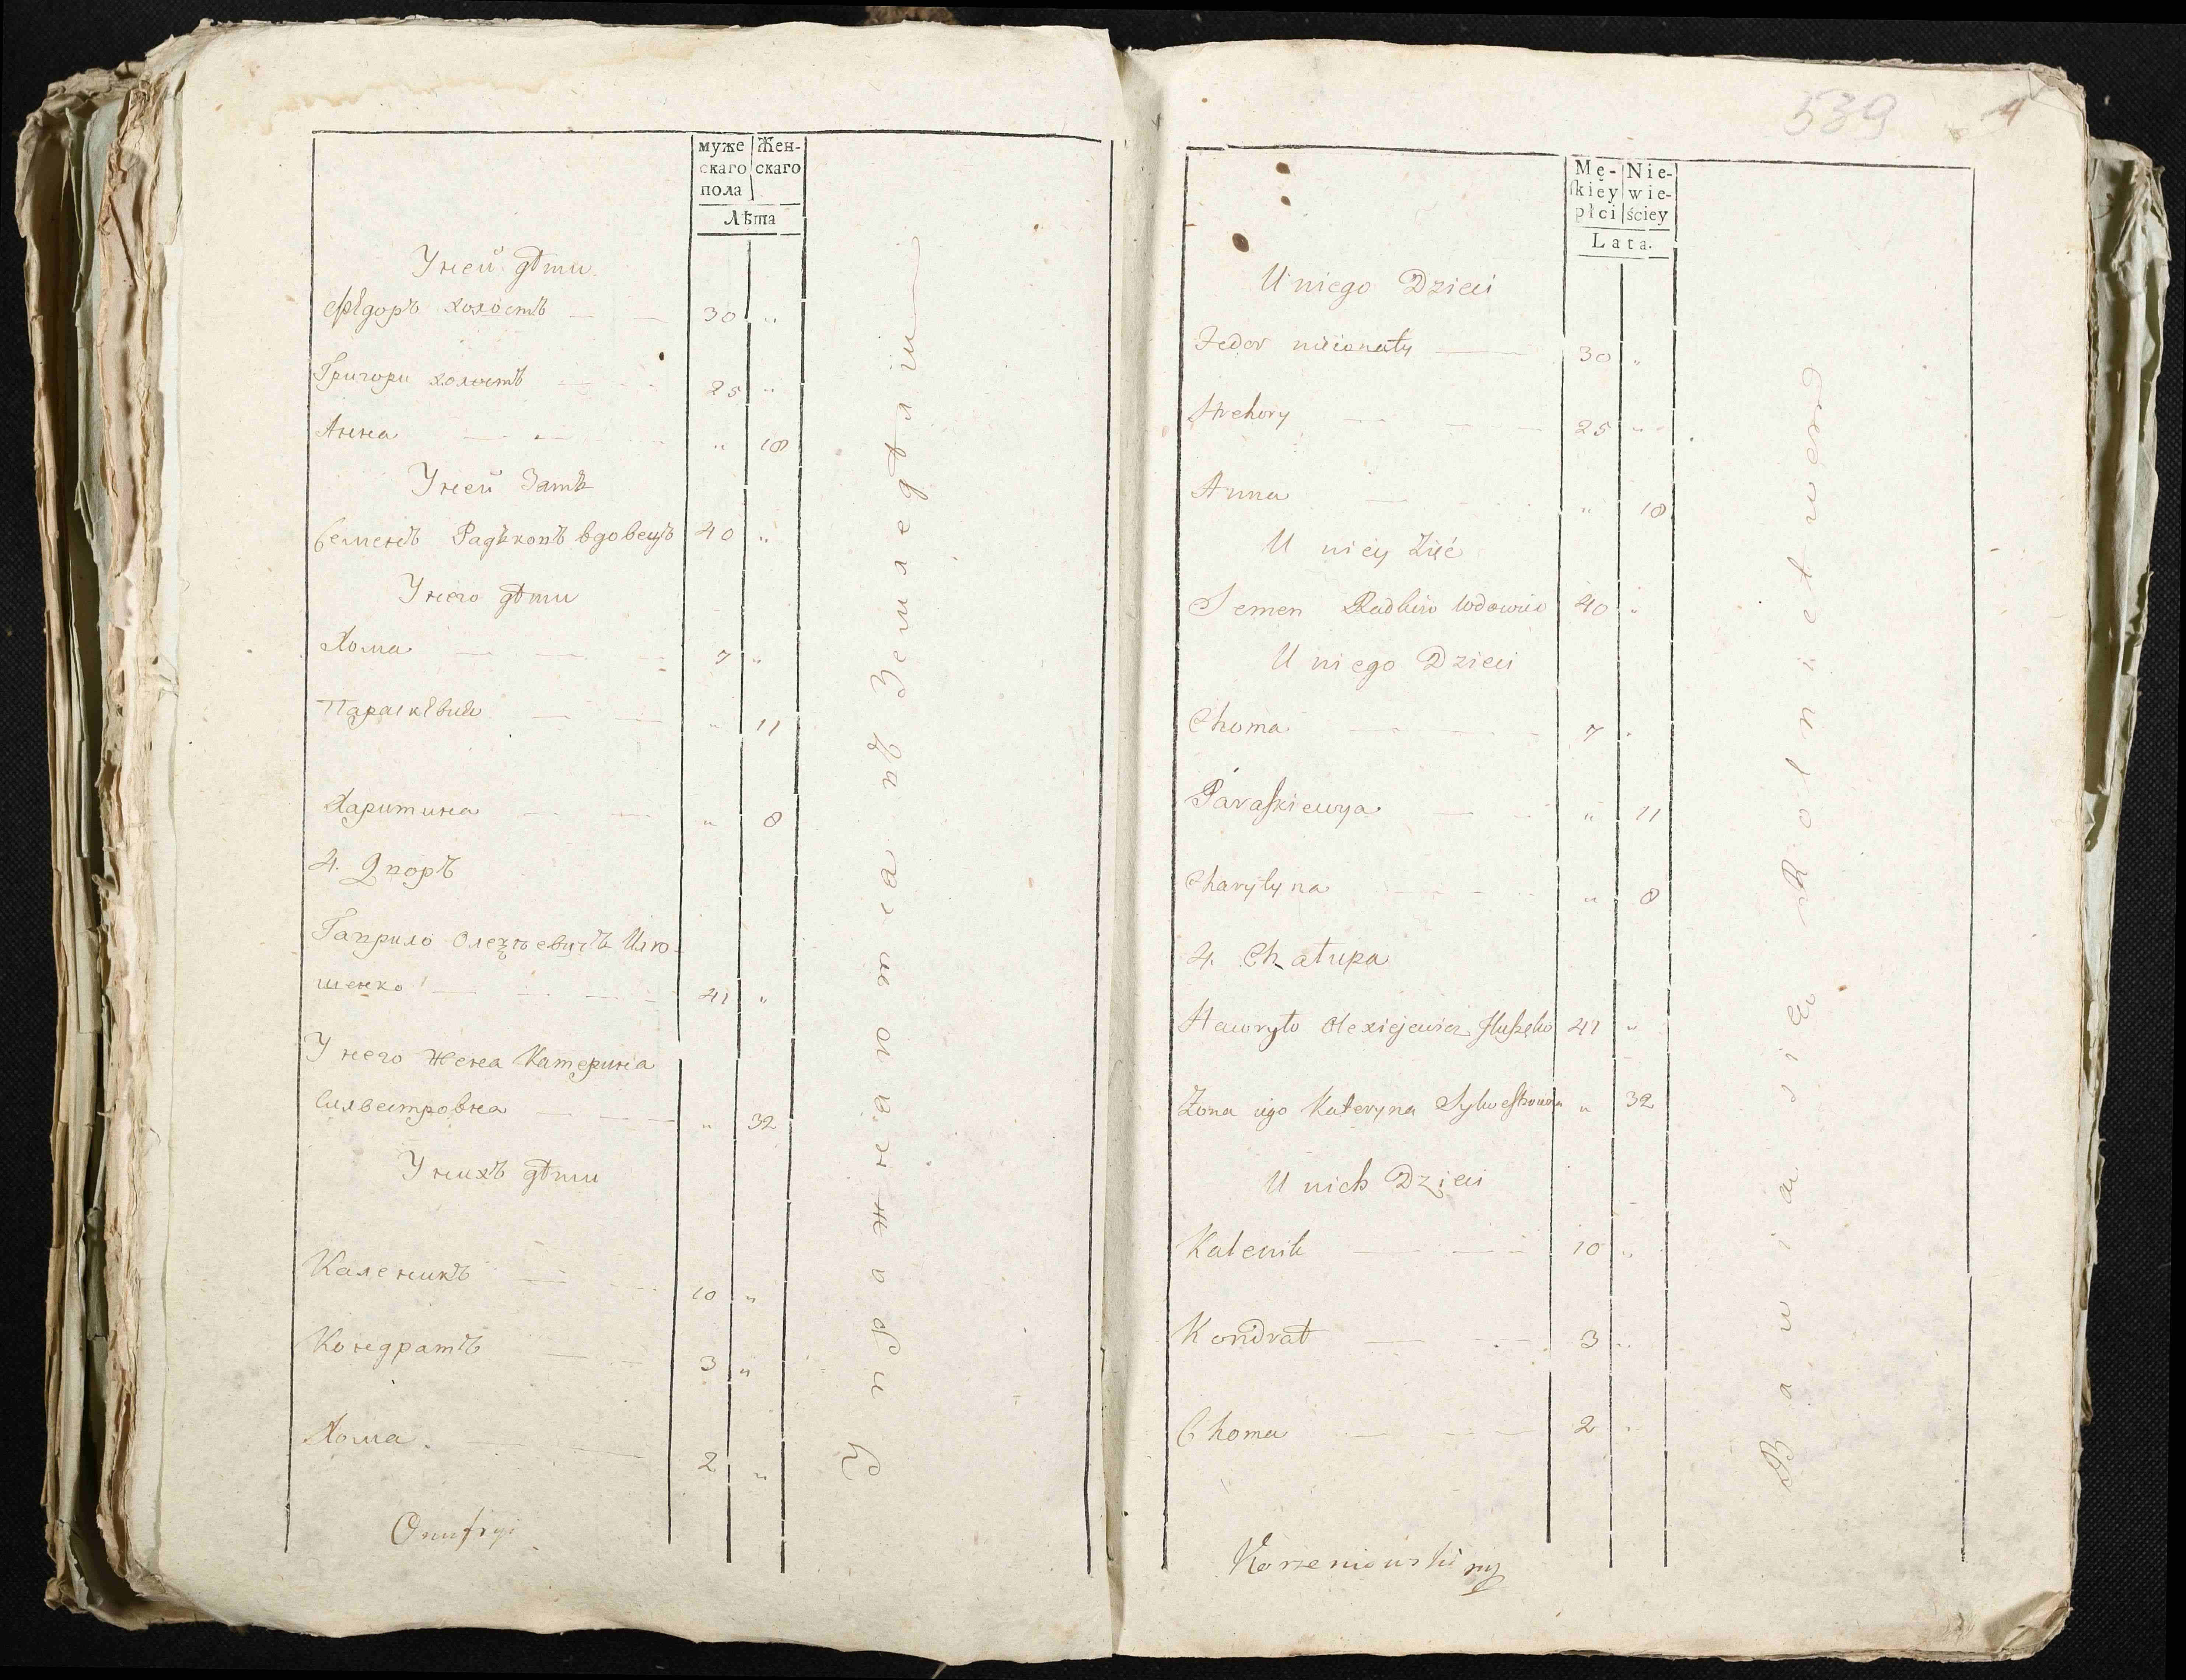 муже
скаго
пола
Жен-
скаго
Лѣта
У ней дѣти
Ѳедоръ холостъ 30 "
Григори холостъ 25 "
Анна " 18
У ней Зять
Семенъ вдовецъ 40 "
У него дѣти
Хома 7 "
Параскѣвия " 11
Харитина " 8
4. Дворъ
Гаврило Шлю-
шенко 41 "
У него жена Катерина
Силвестровна " 32
У нихъ дѣти
Каленикъ 10 "
Кондратъ 3 "
Хома 2 "
Упражнаютса въ Земледѣлїи
Onufryi
539
Mę-
skiey
płci
Nie-
wie-
ściey
Lata.
U niego Dzieci
Fedor nieżonaty 30 "
Hrehory 25 "
Anna " 18
U niey Zięć
Semen wdowiec 40 "
U niego Dzieci
Choma 7 "
Paraskiewya " 11
Charytyna " 8
4. Chałupa
Hawryło Olexiejewicz 41 "
Żona iego Kateryna Sylwestrowna " 32
U nich Dzieci
Kalenik 10 "
Kondrat 3 "
Choma 2 "
Bawia sie Rolnictwem
Korzeniowski